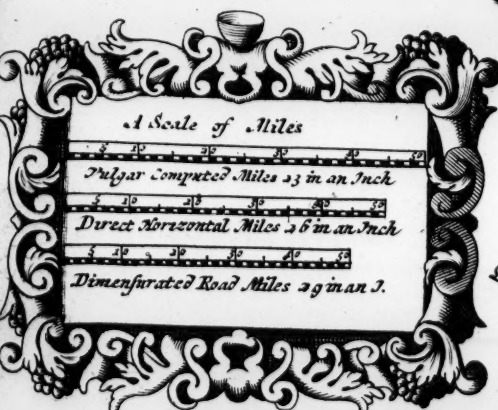 A Scale of Miles
5 10 20 30 40 50
Vulgar Computed Miles 23 in an Inch
5 10 20 30 40 50
Direct Horizontal Miles 26 in an Inch
5 10 20 30 40 50
Dimensurated Road Miles 29 in an I.